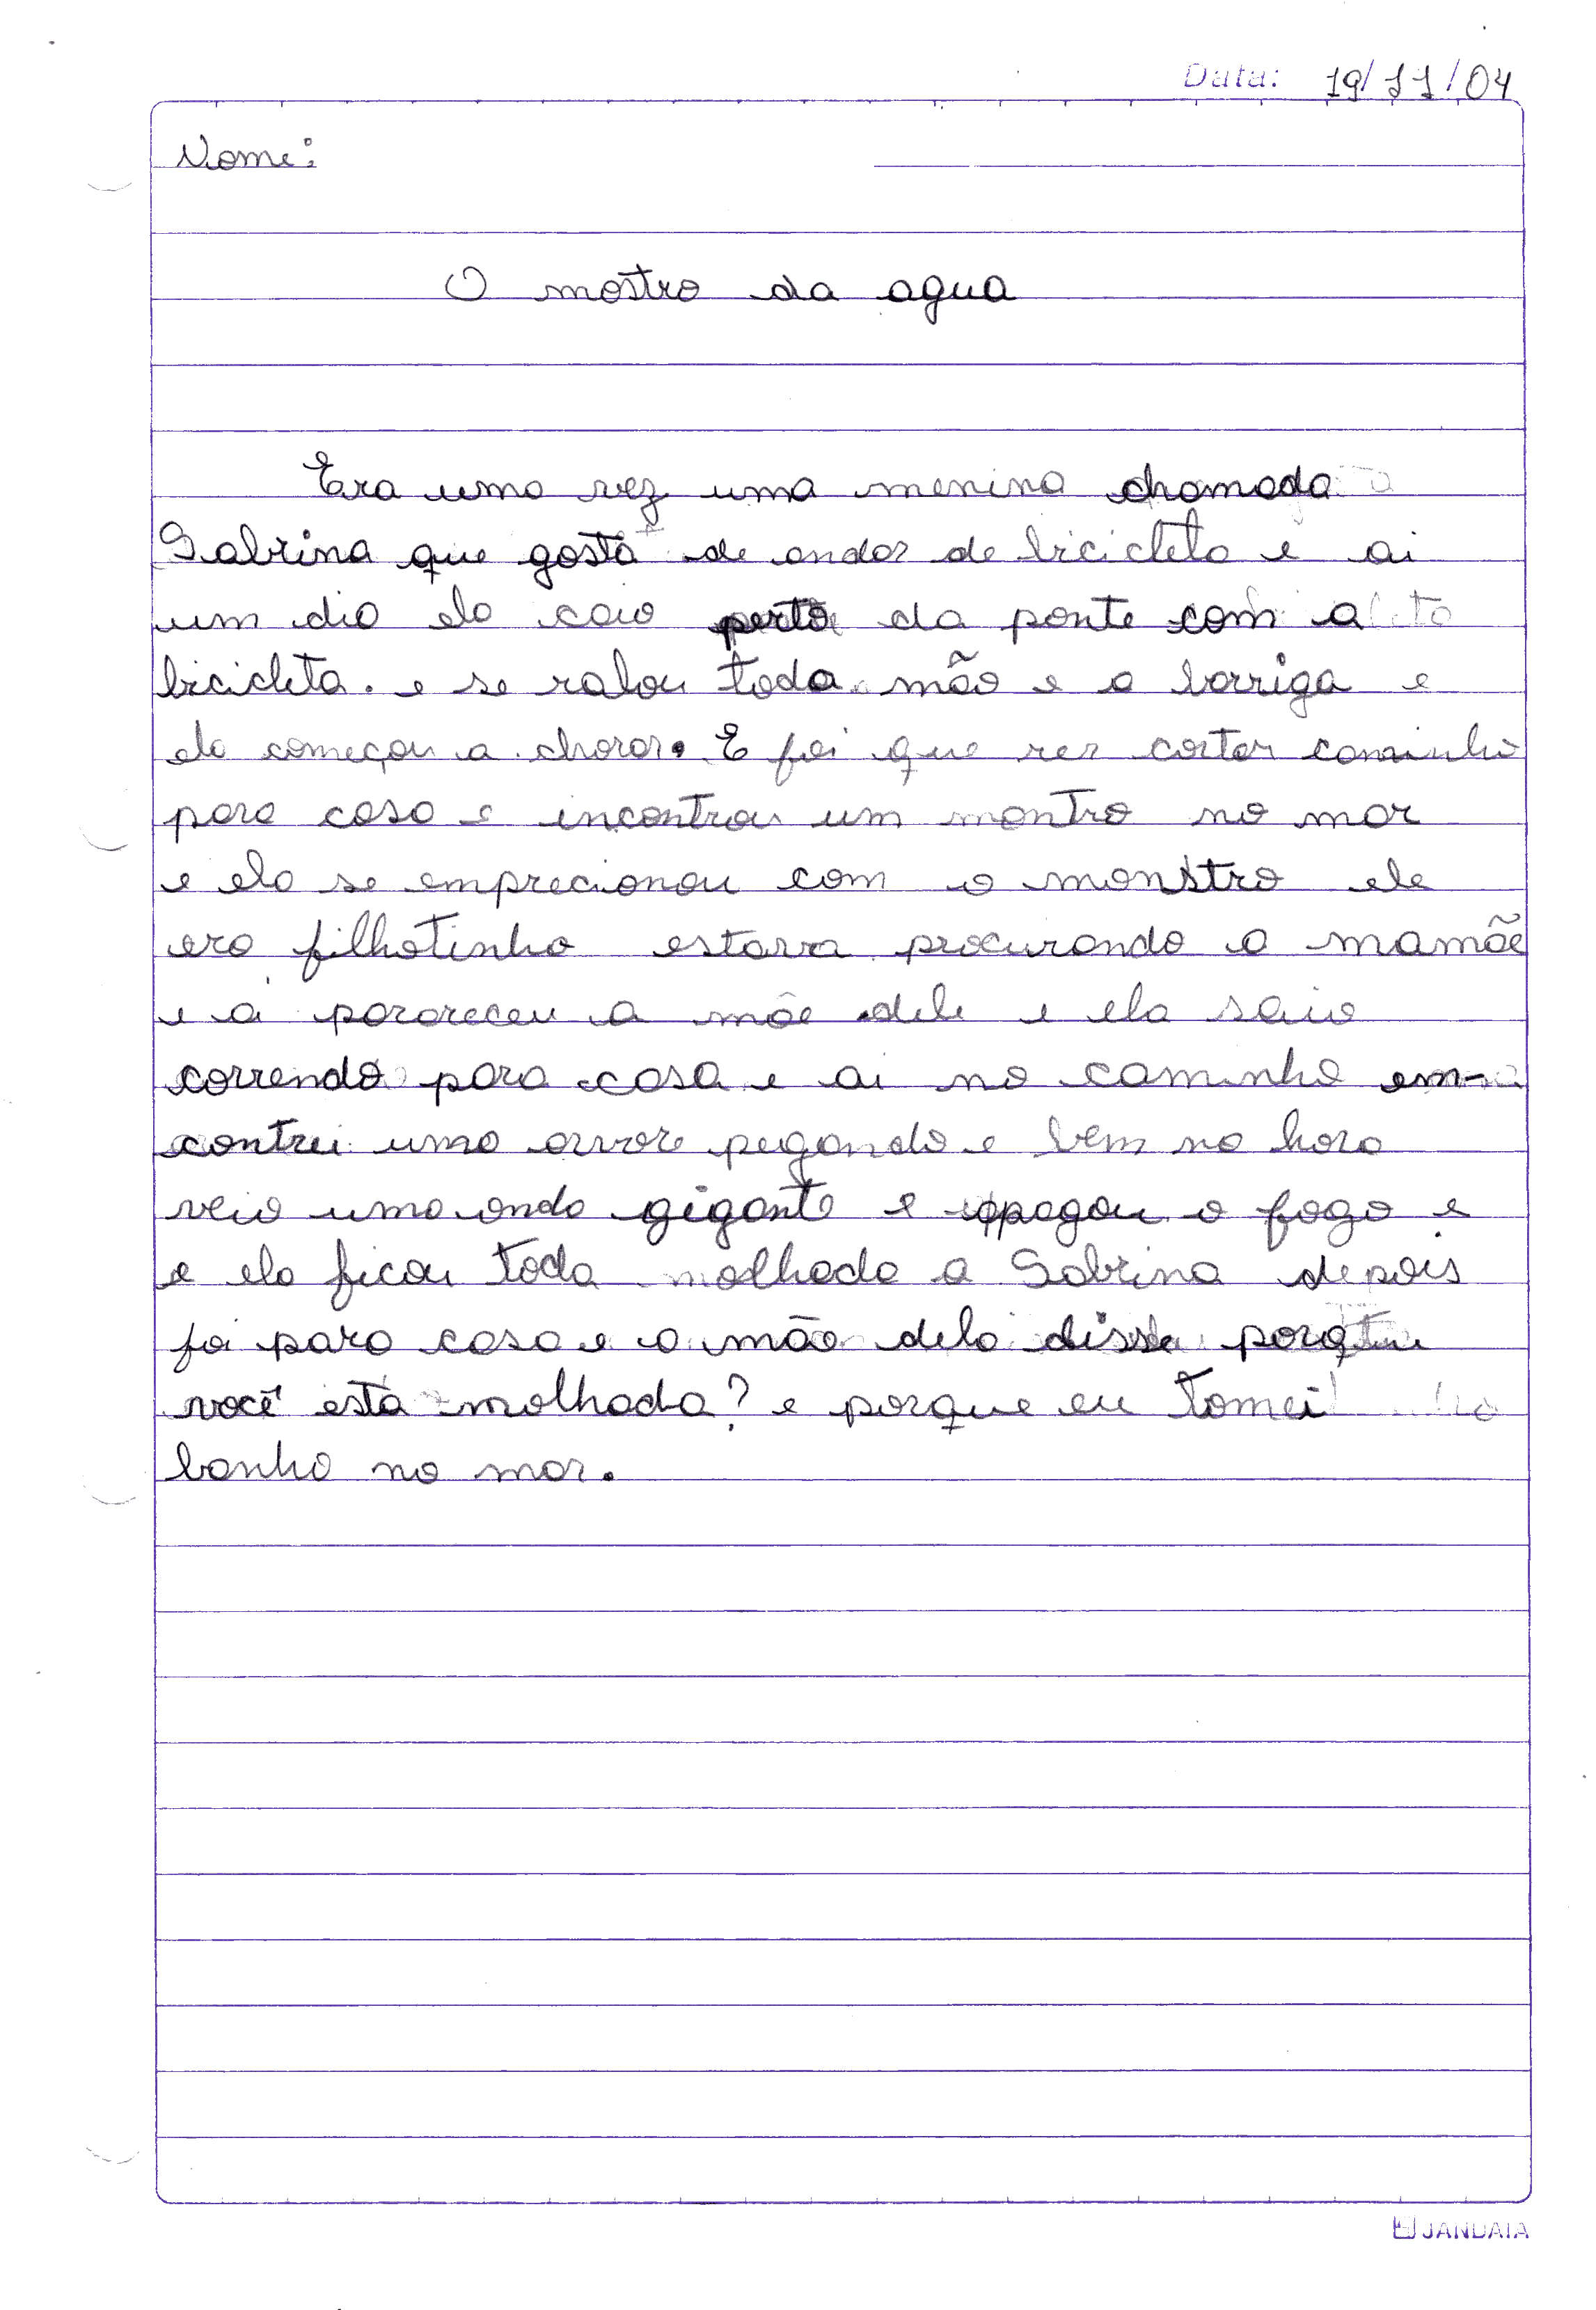 Data: 19/11/04
Nome:
O mostro da agua
Era uma vez uma menina chamada
Sabrina que gosta de andar de bicicleta e ai
um dia ela caio perto da ponte com a
bicicleta. e se ralou toda mão e a barriga e
ela começou a chorar. E foi que rer cortar caminho
para casa e incontrou um montro no mar
e ela se emprecionou com o monstro ele
era filhotinho estava procurando a mamãe
e ai parareceu a mãe dele e ela saiu
correndo para casa e ai no caminho em-
contrei uma arvore pegando e bem na hora
veio uma onda gigante e apagou o fogo e
e ela ficou toda molhada a Sabrina depois
foi para casa e a mão dela disse porque
você está molhada? e porque eu tomei
banho no mar.
JANDAIA